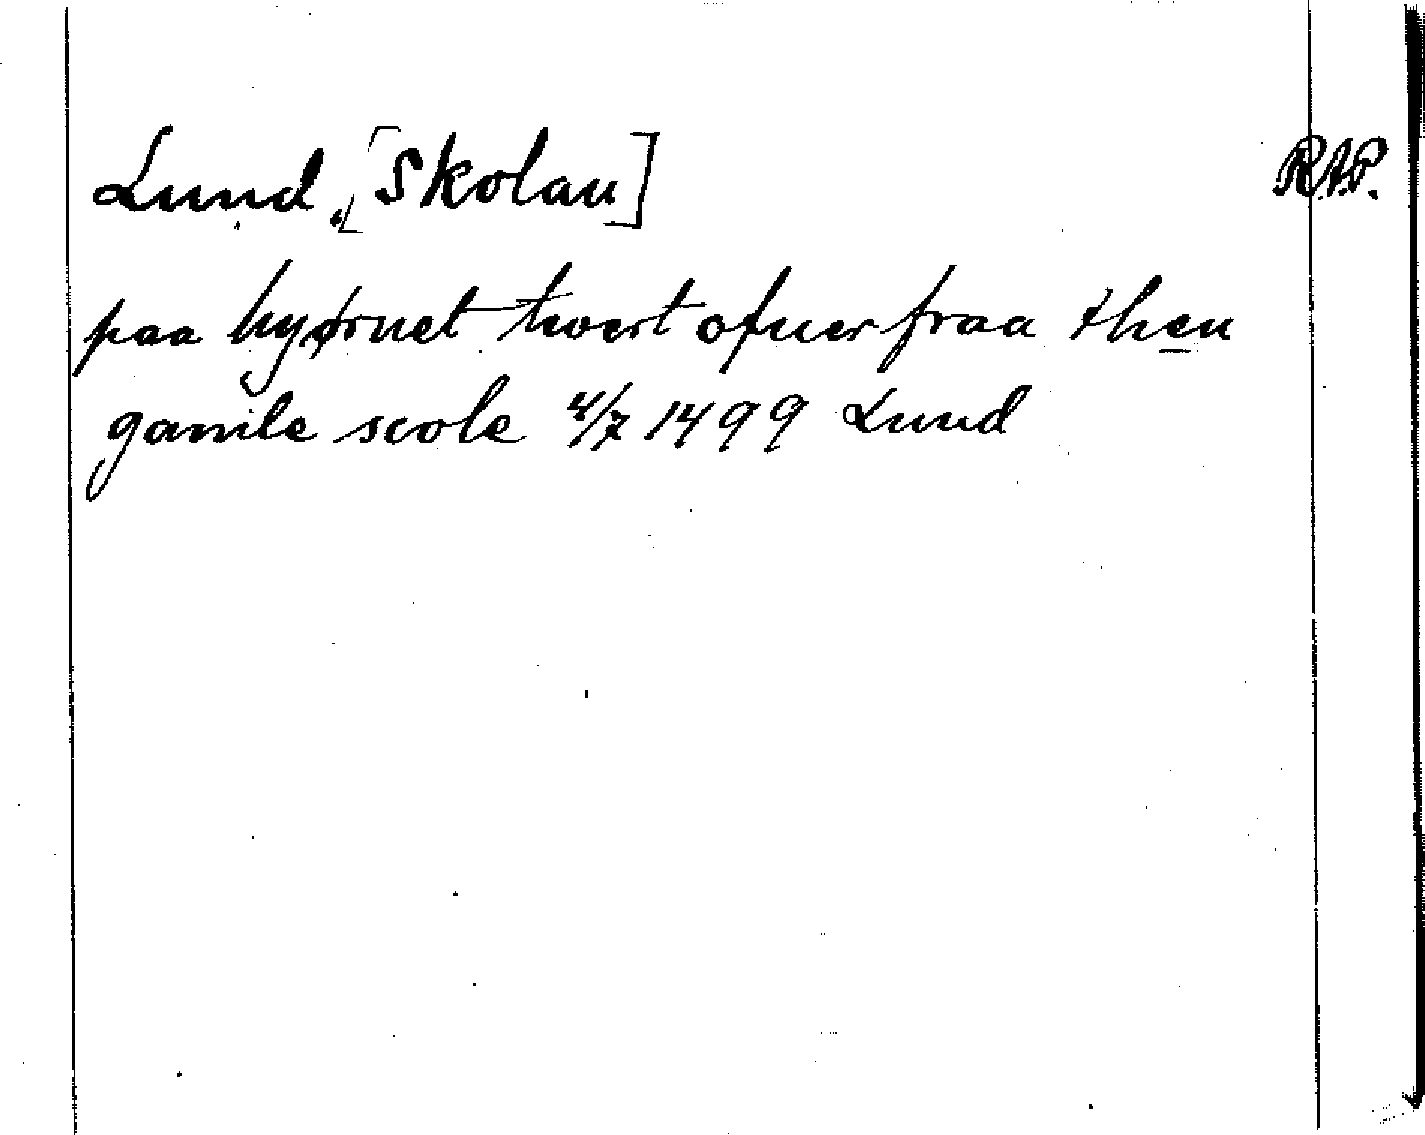 Lund, [Skolan] RAP.
paa hyørnet twert ofuer fraa then
gamle scole 4/7 1499 Lund